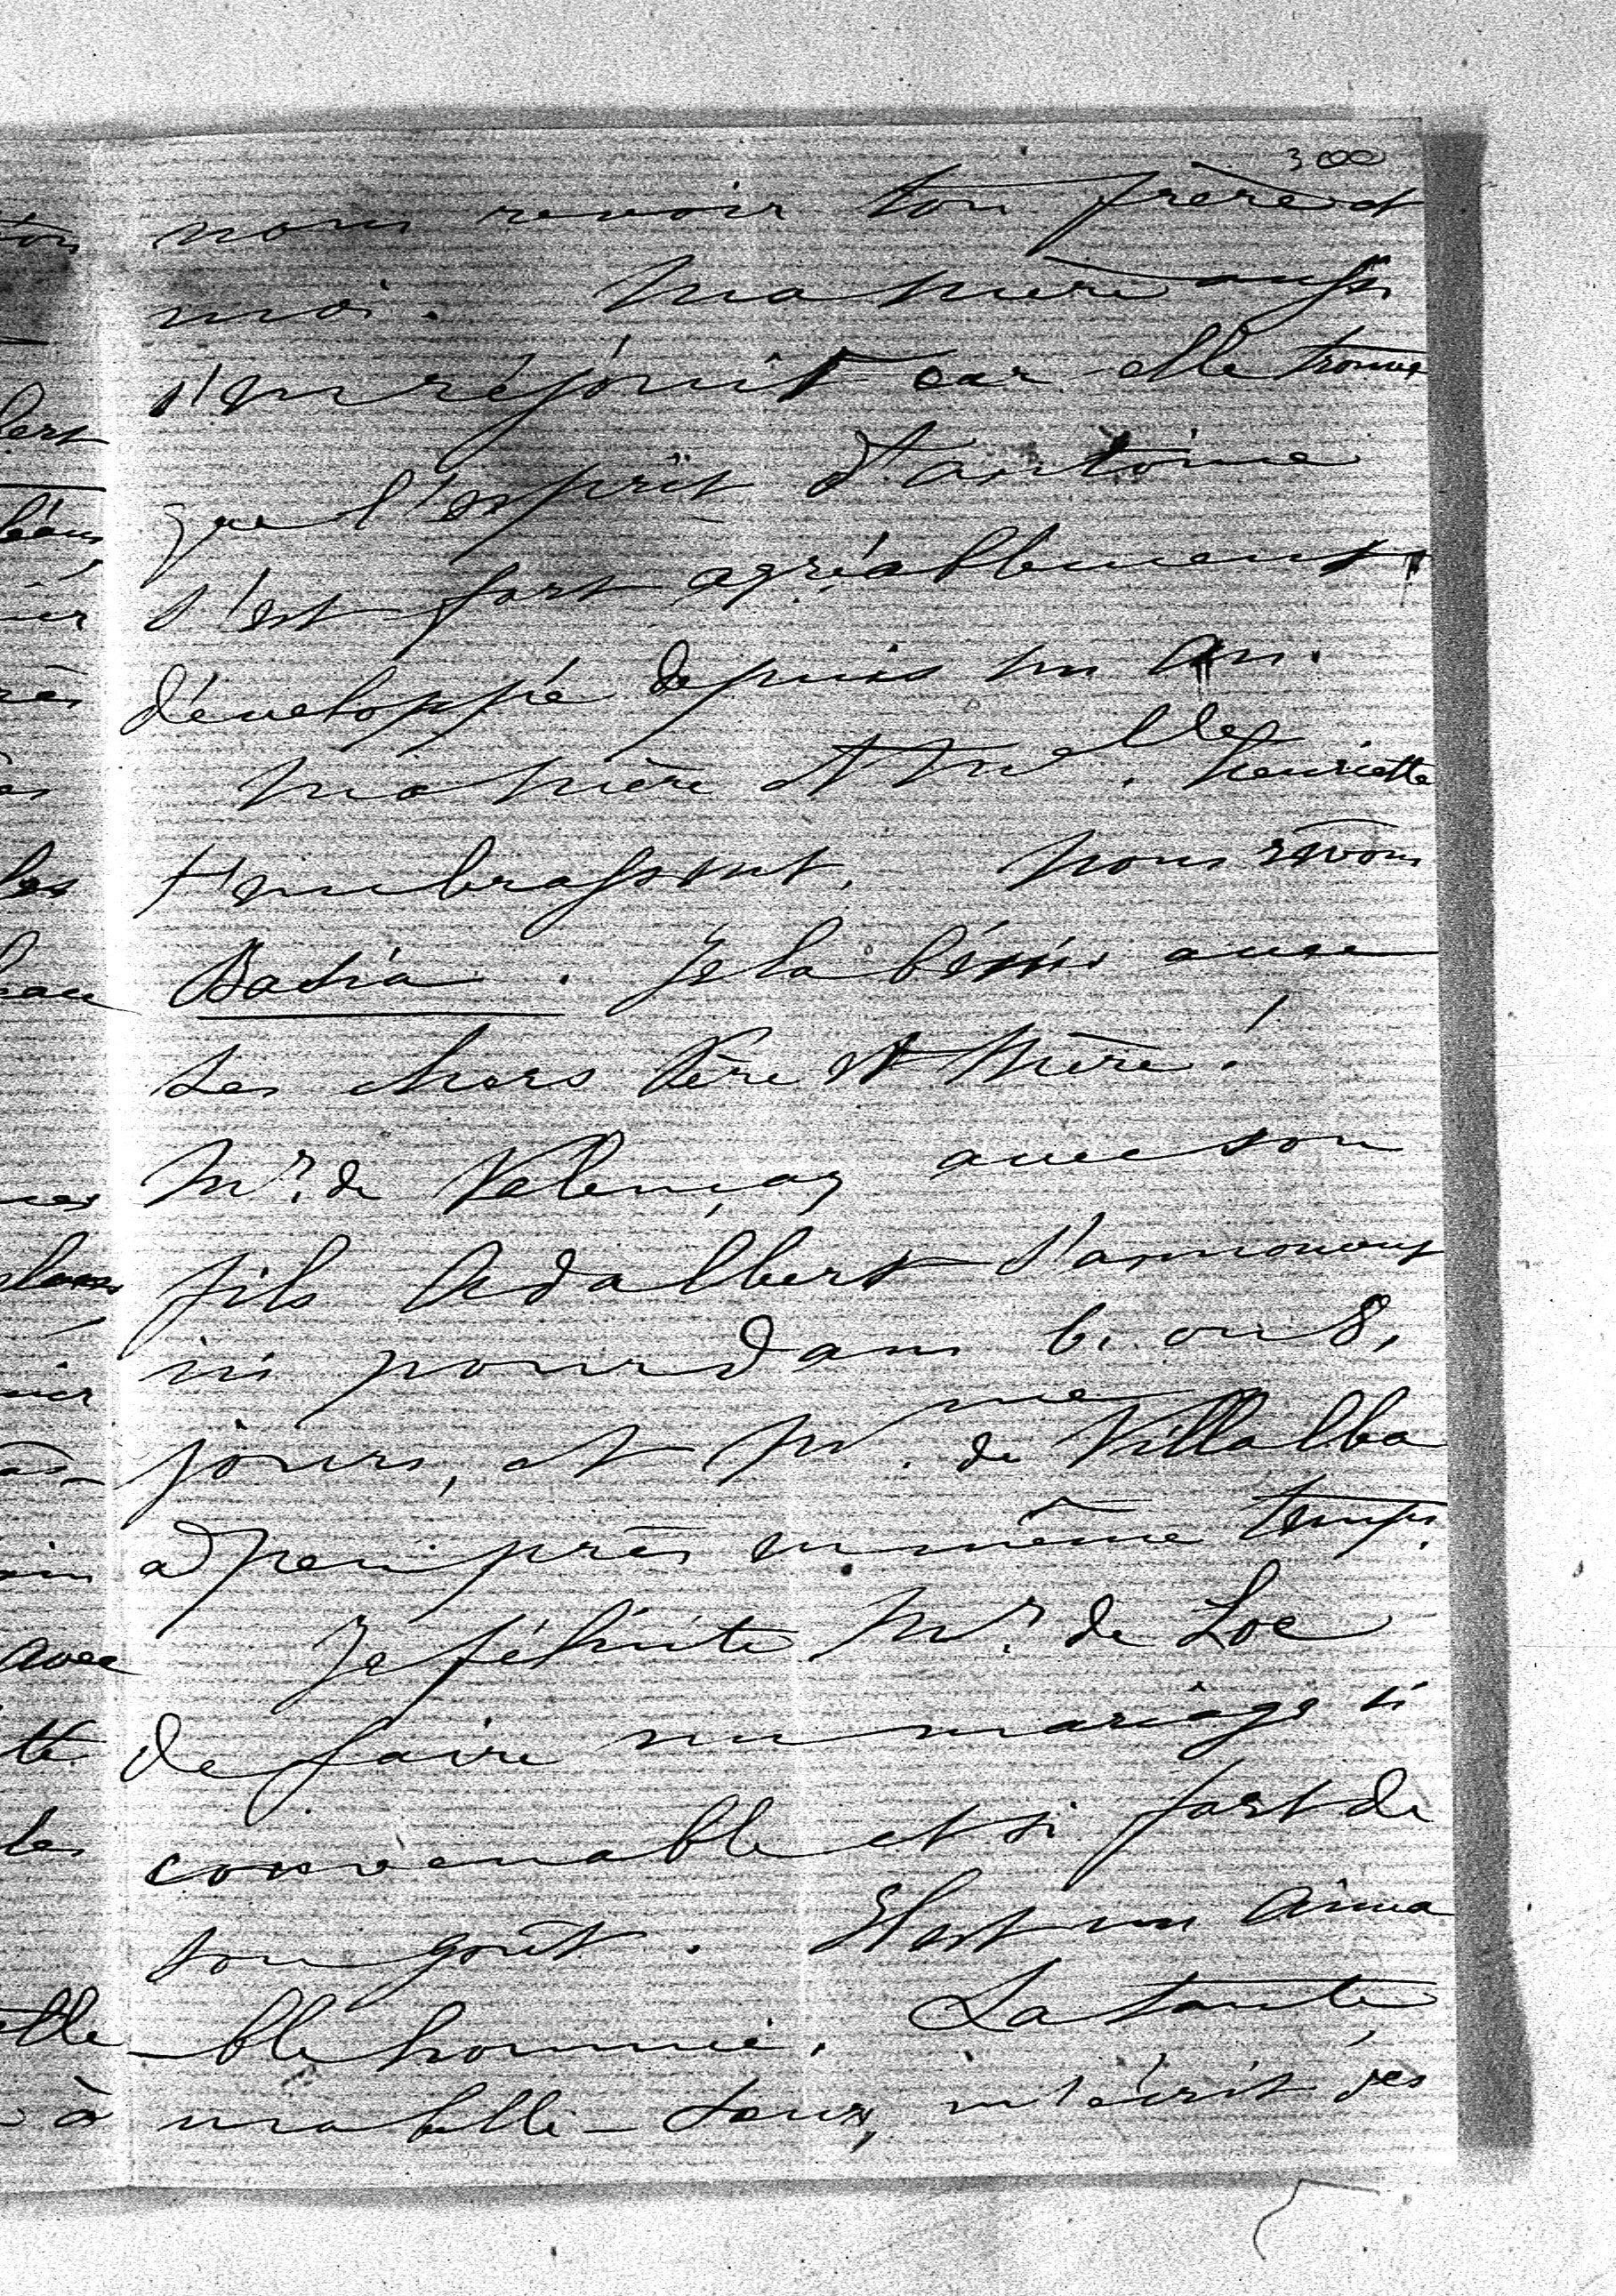 300
nous revoir ton frère et
moi. Ma mère aussi
s'en réjouit car elle trouve
que l'esprit d'antoine
s'est fort agréablement
développé depuis un an.
Ma mère et Melle. henriette
t'embrassent. Nous rêvons
Badia. Je la bénis avec
ses chers Père et Mère!
Mr. de Valençay avec son
fils Adalbert s'annoncent
ici pour dans 6. ou 8,
jours, et Mme. de Villalba
a peu près en même temps.
Je félicite Mr. de Loe
de faire un mariage si
convenable et si fort de
son goût. Il est un aima
-ble homme. La tante,
ma belle-soeur, m'écrit des